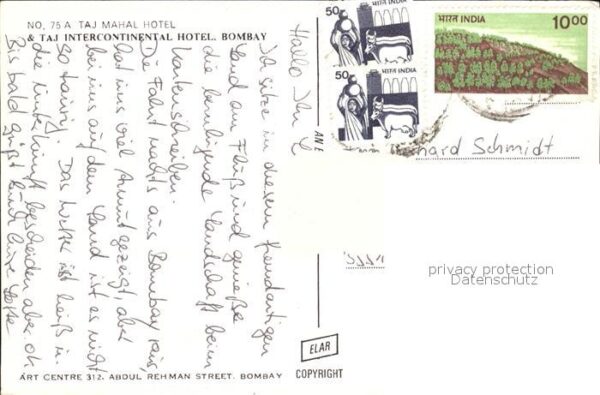 NO. 75 A TAJ MAHAL HOTEL
& TAJ INTERCONTINENTAL HOTEL, BOMBAY
Hallo Ihr
Ich sitze in diesem fremdartigen
Land am Fluß und genieße
die beruhigende Landschaft beim
Kartenschreiben.
Die Fahrt nachts aus Bombay raus,
hat uns viel Armut gezeigt, aber
hier auf dem Land ist es nicht
so traurig. Das Wetter ist heiß u.
die Unterkünfte bescheiden aber ok
Bis bald grüßt Euch Eure
50
भारत INDIA
50
भारत INDIA
भारत INDIA
10.00
hard Schmidt
privacy protection
Datenschutz
ELAR
COPYRIGHT
ART CENTRE 312, ABDUL REHMAN STREET, BOMBAY